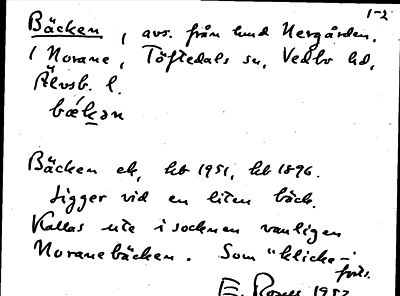 1-2
Bäcken, avs. från hmd Nergården,
i Norane, Töftedals sn, Vedbo hd,
Älvsb. l.
bækən
Bäcken ek, kb 1951, kb 1896.
Ligger vid en liten bäck.
Kallas ute i socknen vanligen
Noranebäcken. Som "klicka-
forts.
E. 1952